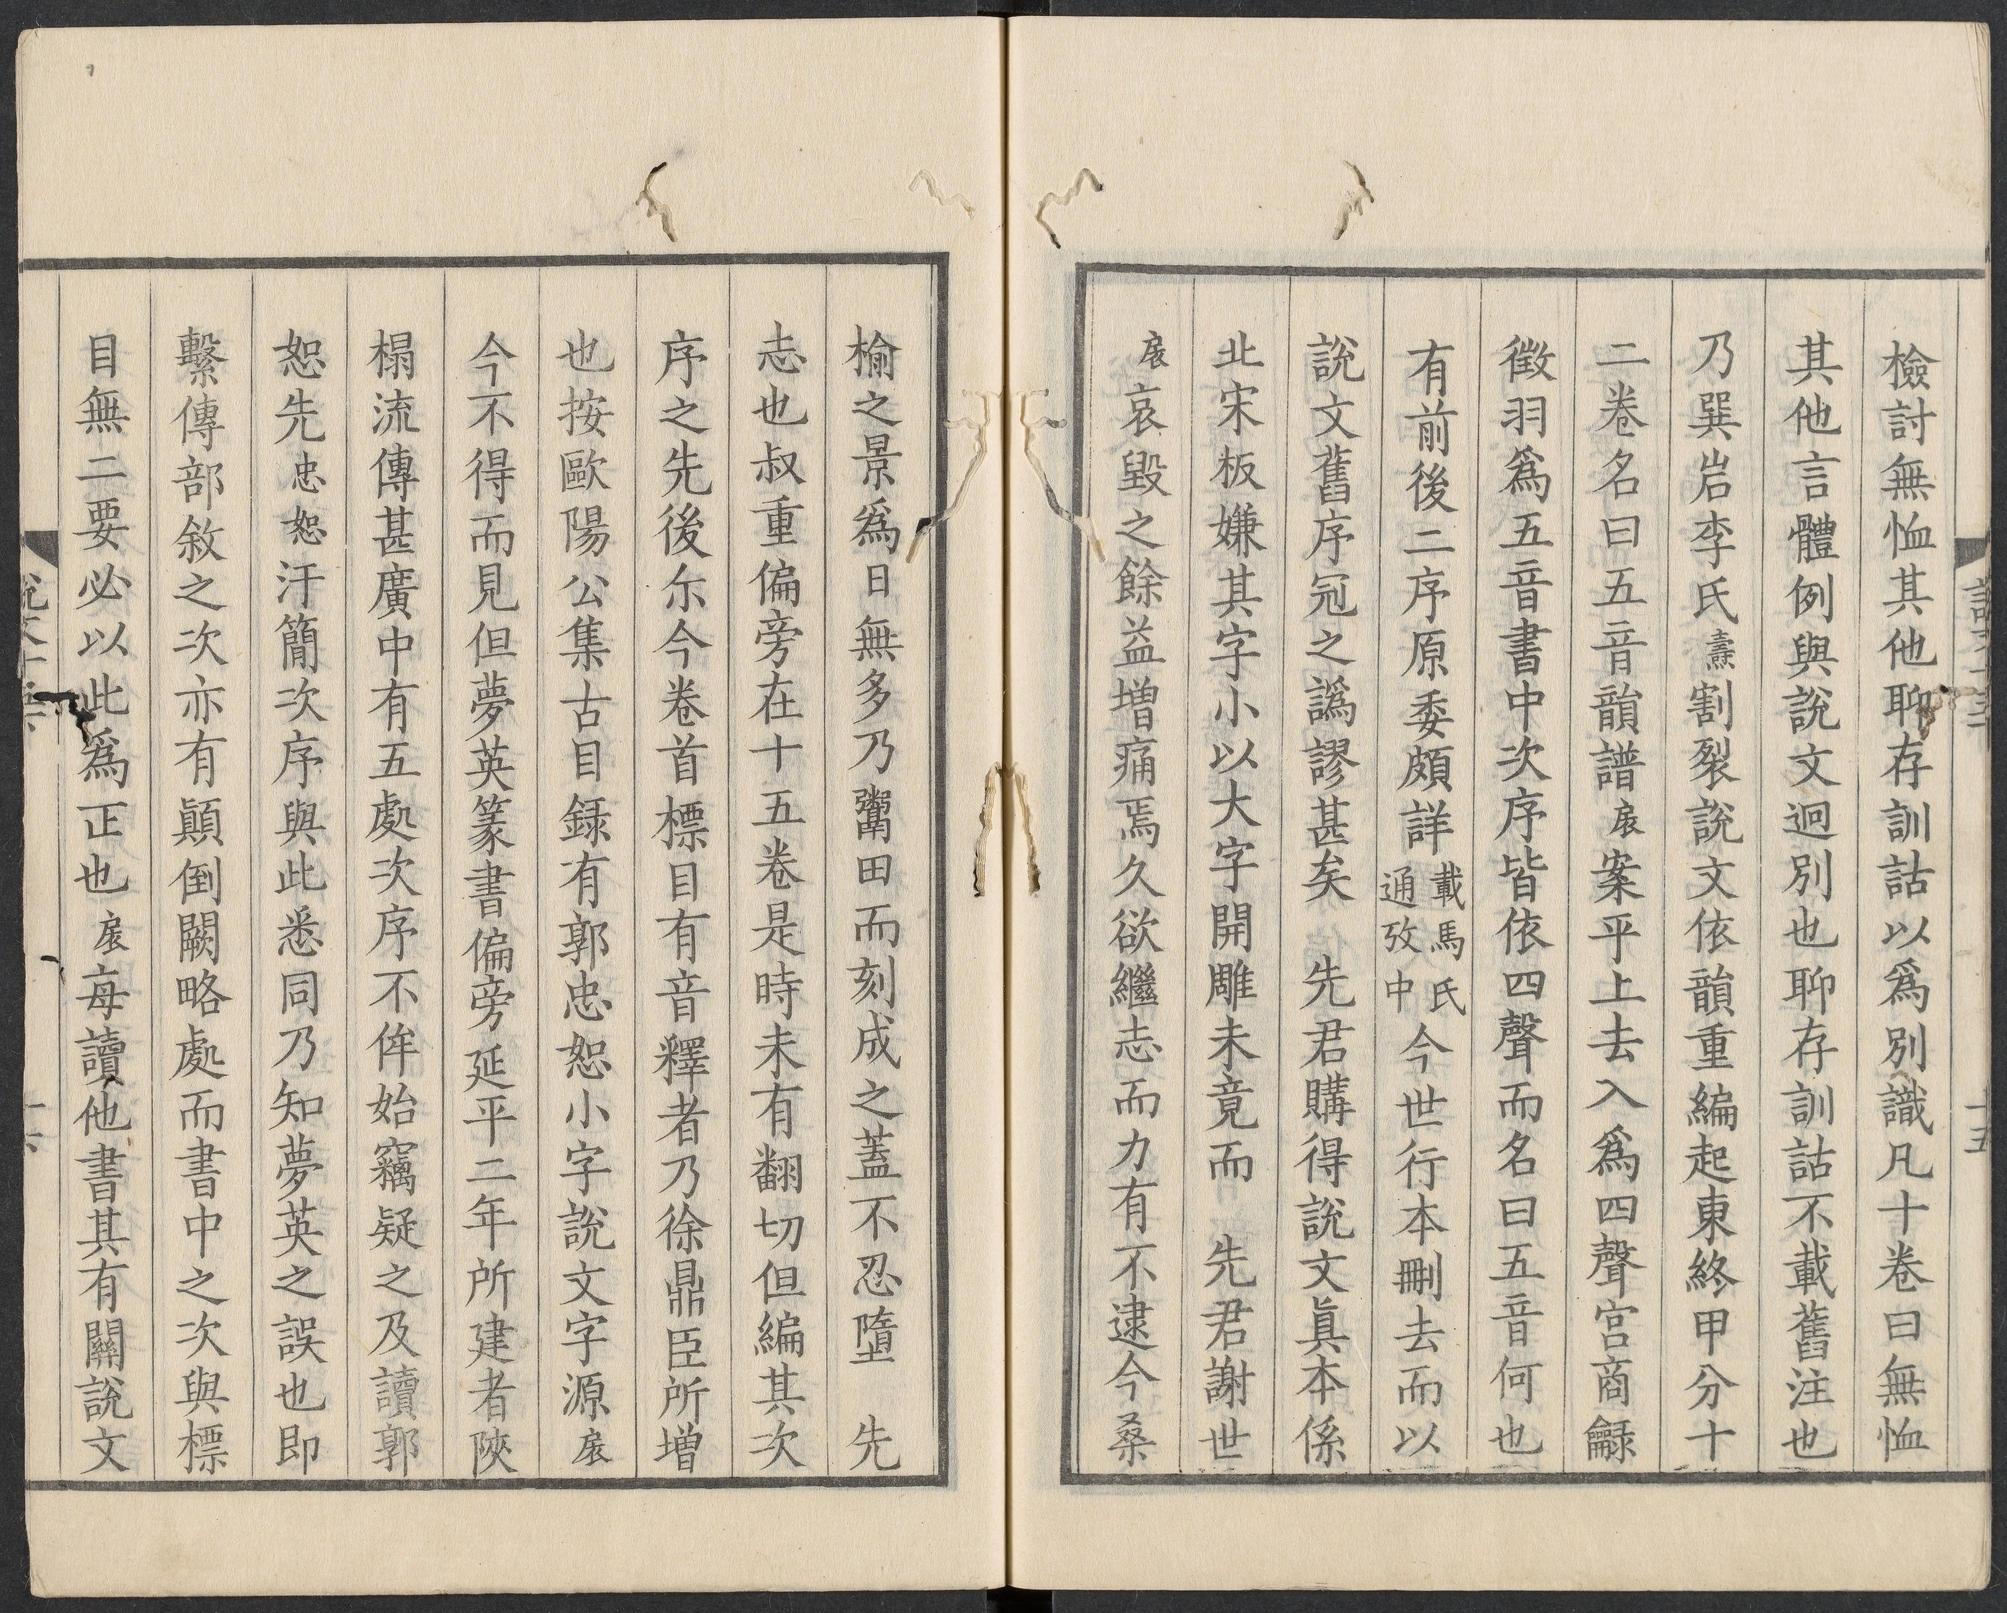 檢討無恤其他聊存訓詁以爲別識凡十卷曰無恤
其他言體例與說文迥別也聊存訓詁不載舊注也
乃巽岩李氏燾割裂說文依韻重編起東終甲分十
二卷名曰五音韻譜扆案平上去入爲四聲宮商龣
徵羽爲五音書中次序皆依四聲而名曰五音何也
有前後二序原委頗詳載馬氏通攷中今世行本刪去而以
說文舊序冠之譌謬甚矣 先君購得說文真本係
北宋板嫌其字小以大字開雕未竟而 先君謝世
扆哀毀之餘益增痛焉久欲繼志而力有不逮今桑
榆之景爲日無多乃鬻田而刻成之蓋不忍墮 先
志也叔重偏旁在十五卷是時未有翻切但編其次
序之先後尒今卷首標目有音釋者乃徐鼎臣所增
也按歐陽公集古目録有郭忠恕小字說文字源扆
今不得而見但夢英篆書偏旁延平二年所建者陝
榻流傳甚廣中有五處次序不侔始竊疑之及讀郭
恕先忠恕汗簡次序與此悉同乃知夢英之誤也即
繫傳部敘之次亦有顛倒闕略處而書中之次與標
目無二要必以此爲正也扆每讀他書其有關說文
說文十五下
十五